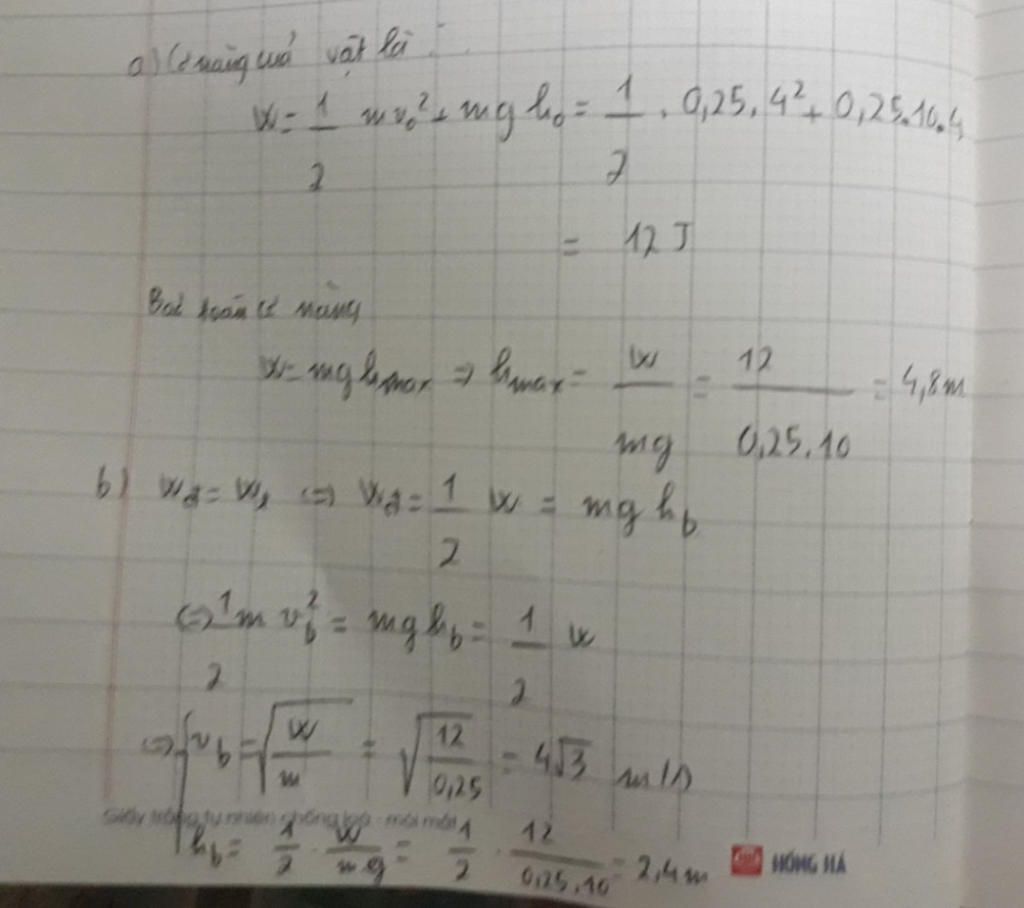 a) Cơ năng của vật là :
W = 1/2 mv₀² + mgh₀ = 1/2 . 0,25 . 4² + 0,25.10.4
= 12 J
Bảo toàn cơ năng
W = mgh_max ⇒ h_max = W/mg = 12/0,25.10 = 4,8m
b) Wđ = Wt ⇔ Wđ = 1/2 W = mgh_b
⇔ 1/2 m v_b² = mgh_b = 1/2 W
⇔ { v_b = √(W/m) = √(12/0,25) = 4√3 m/s
Giấy trắng tự nhiên chống loá - mỏi mắt
h_b = 1/2 . W/mg = 1/2 . 12/0,25.10 = 2,4m
HỒNG HÀ